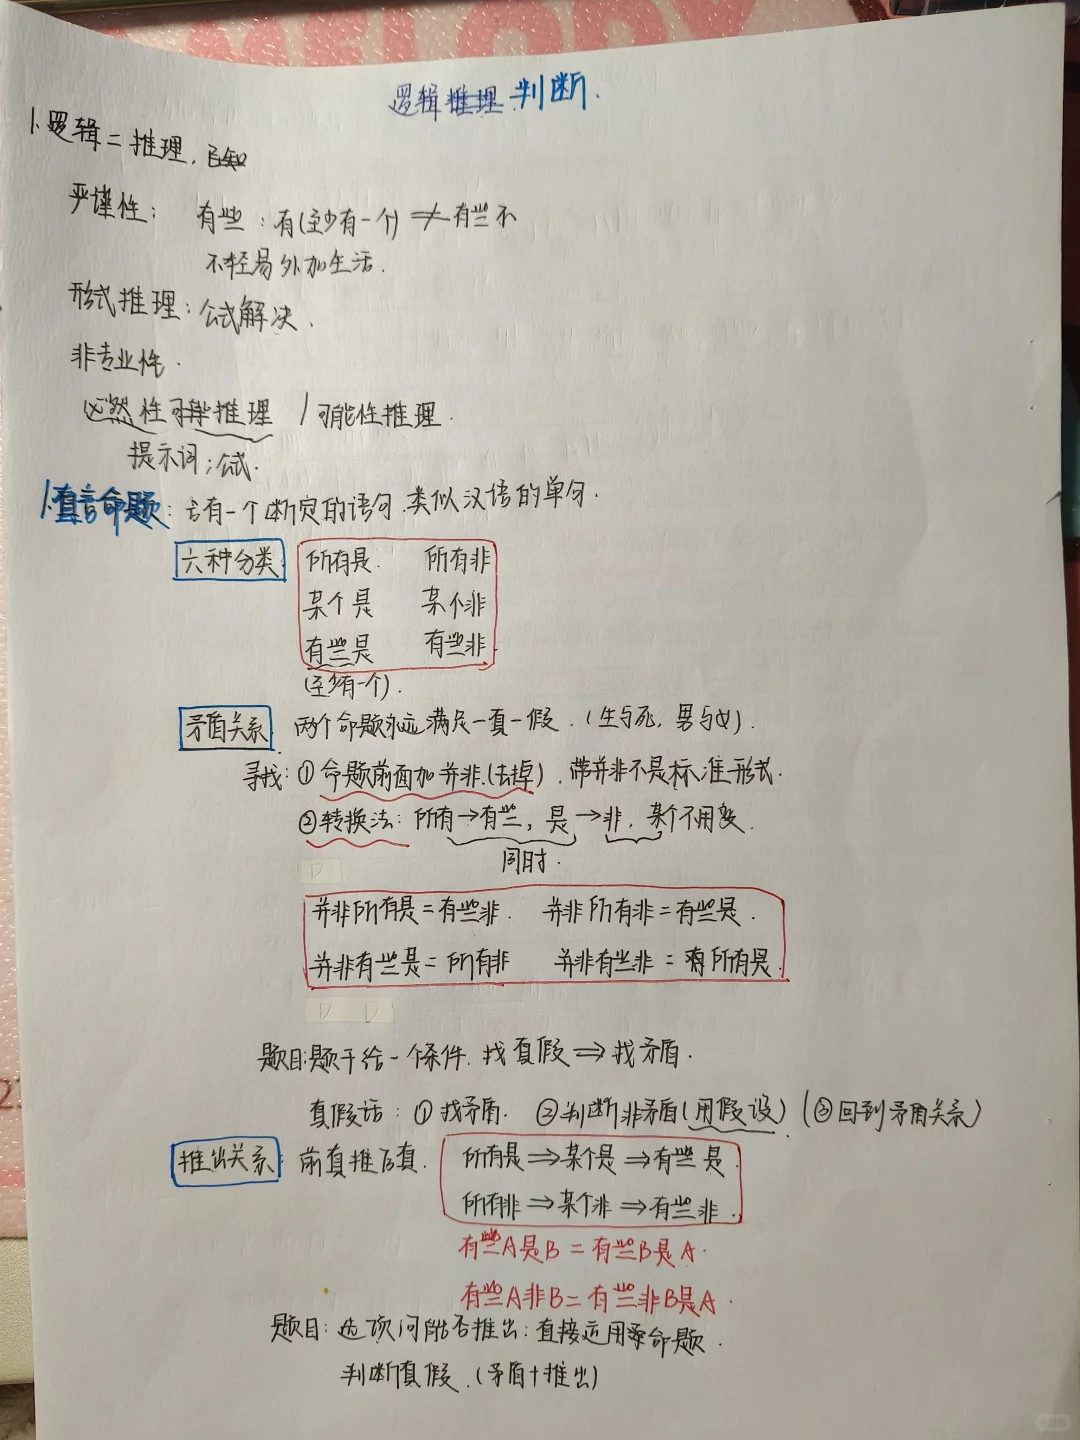 MELODY
逻辑推理判断.
1.逻辑=推理,已知
严谨性: 有些:有(至少有一个)≠有些不
不轻易外加生活.
形式推理:公式解决.
非专业性.
必然性推理 / 可能性推理.
提示词;公式.
1.直言命题:含有一个断定的语句.类似汉语的单句.
六种分类: 所有是. 所有非
某个是 某个非
有些是 有些非.
(至少有一个).
矛盾关系. 两个命题永远满足一真一假.(生与死,男与女).
寻找:①命题前面加并非.(去掉).带并非不是标准形式.
②转换法:所有→有些,是→非.某个不用变.
同时.
并非所有是=有些非. 并非所有非=有些是.
并非有些是=所有非 并非有些非=所有是.
题目:题干给一个条件.找真假⇒找矛盾.
真假话:①找矛盾. ②判断非矛盾(用假设)(③回到矛盾关系)
推出关系: 前真推后真. 所有是⇒某个是⇒有些是.
所有非⇒某个非⇒有些非.
有些A是B=有些B是A.
有些A非B=有些非B是A.
题目:选项问能否推出:直接运用命题.
判断真假.(矛盾+推出)
小红书